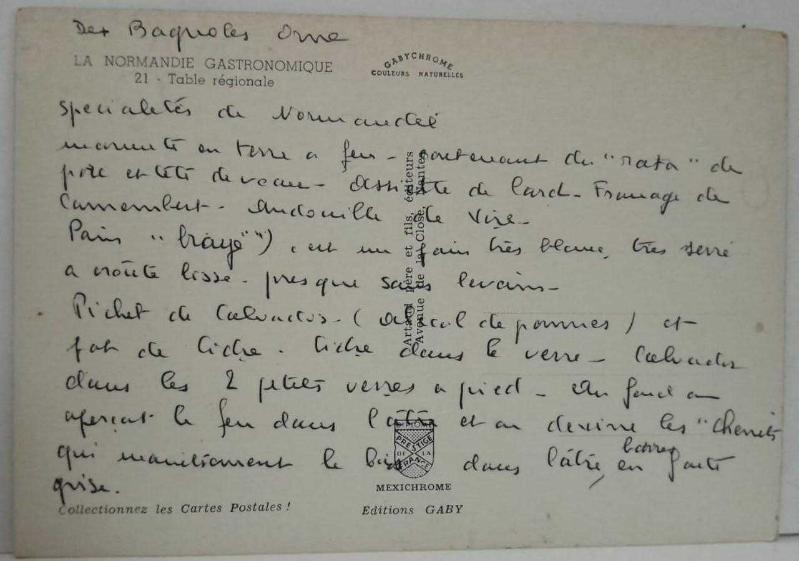 Bagnoles Orne
LA NORMANDIE GASTRONOMIQUE
21 - Table régionale
GABYCHROME
COULEURS NATURELLES
Spécialités de Normandie
marmite en terre a feu - contenant du "rata" de
porc et tête de veau - assiette de lard - Fromage de
Camembert - Andouille de Vire -
Pain "brayé") c'est un pain très blanc, très serré
a croûte lisse - presque sans levain -
Pichet de Calvados - (alcool de pommes) et
pot de cidre - cidre dans le verre - Calvados
dans les 2 petits verres a pied - Au fond on
aperçoit le feu dans l'âtre et on devine les "chenets
qui maintiennent le bois dans l'âtre, en barres fonte
grise.
Artaud père et fils, éditeurs
Avenue de la Close, Nantes
PRESTIGE
DE LA
FRANCE
MEXICHROME
Collectionnez les Cartes Postales !
Editions GABY